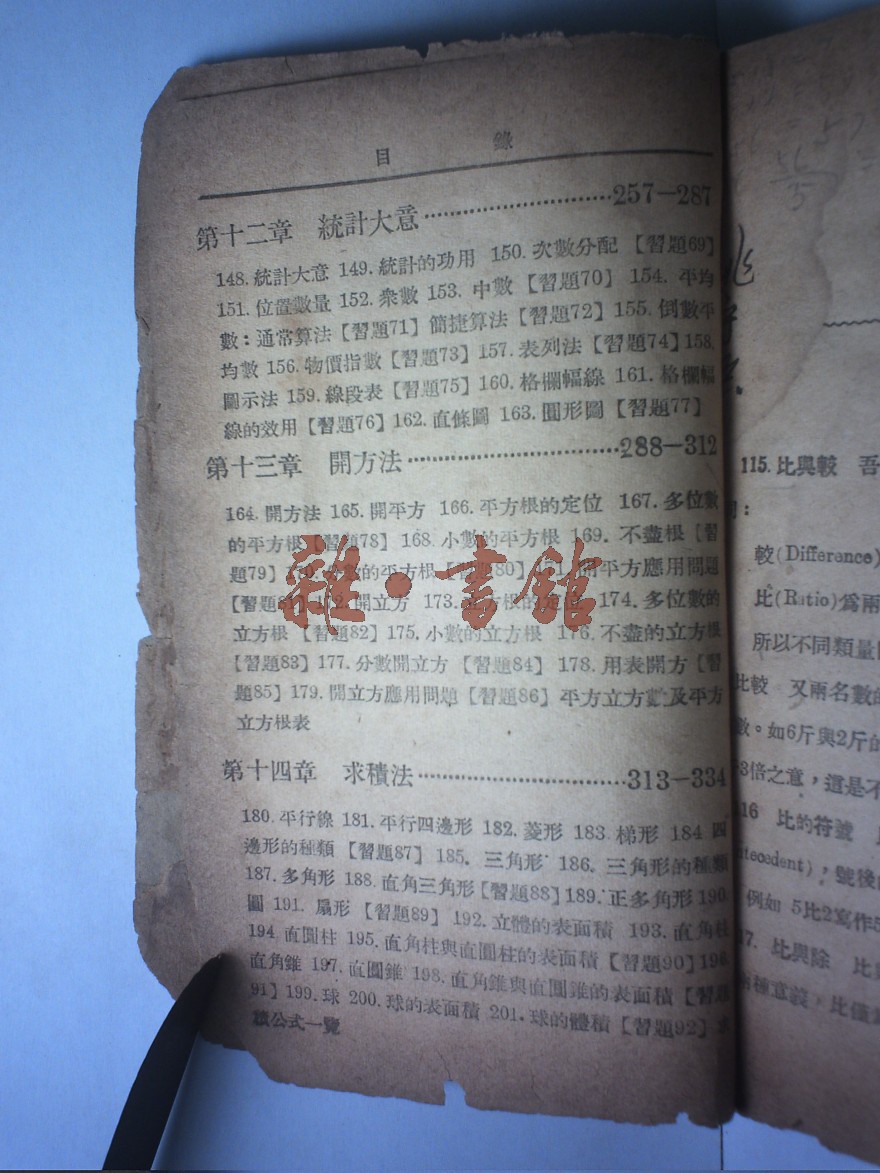 目 錄
第十二章 統計大意…………………257—287
148. 統計大意 149. 統計的功用 150. 次數分配 【習題69】
151. 位置數量 152. 衆數 153. 中數 【習題70】 154. 平均
數：通常算法【習題71】簡捷算法【習題72】155. 倒數平
均數 156. 物價指數【習題73】157. 表列法【習題74】158.
圖示法 159. 線段表【習題75】160. 格欄幅線 161. 格欄幅
線的效用【習題76】162. 直條圖 163. 圓形圖【習題77】
第十三章 開方法…………………288—312
164. 開方法 165. 開平方 166. 平方根的定位 167. 多位數
的平方根【習題78】168. 小數的平方根 169. 不盡根【習
題79】170. 分數的平方根【習題80】171. 開平方應用問題
【習題81】172. 開立方 173. 立方根的定位 174. 多位數的
立方根 【習題82】175. 小數的立方根 176. 不盡的立方根
【習題83】177. 分數開立方 【習題84】 178. 用表開方【習
題85】179. 開立方應用問題【習題86】平方立方數及平方
立方根表
第十四章 求積法…………………313—334
180. 平行線 181. 平行四邊形 182. 菱形 183. 梯形 184 四
邊形的種類 【習題87】 185. 三角形 186. 三角形的種類
187. 多角形 188. 直角三角形【習題88】189. 正多角形 190.
圓 191. 扇形 【習題89】 192. 立體的表面積 193. 直角柱
194 直圓柱 195. 直角柱與直圓柱的表面積【習題90】196.
直角錐 197. 直圓錐 198. 直角錐與直圓錐的表面積【習題
91】199. 球 200. 球的表面積 201. 球的體積【習題92】求
積公式一覽
雜·書館
115. 比與較 吾
較(Difference)
比(Ratio)爲兩
所以不同類量
比較 又兩名數的
數。如6斤與2斤的
3倍之意，這是不
16 比的符號
tecedent)，號後
例如 5比2寫作5
17. 比與除 比
種意義，比僅